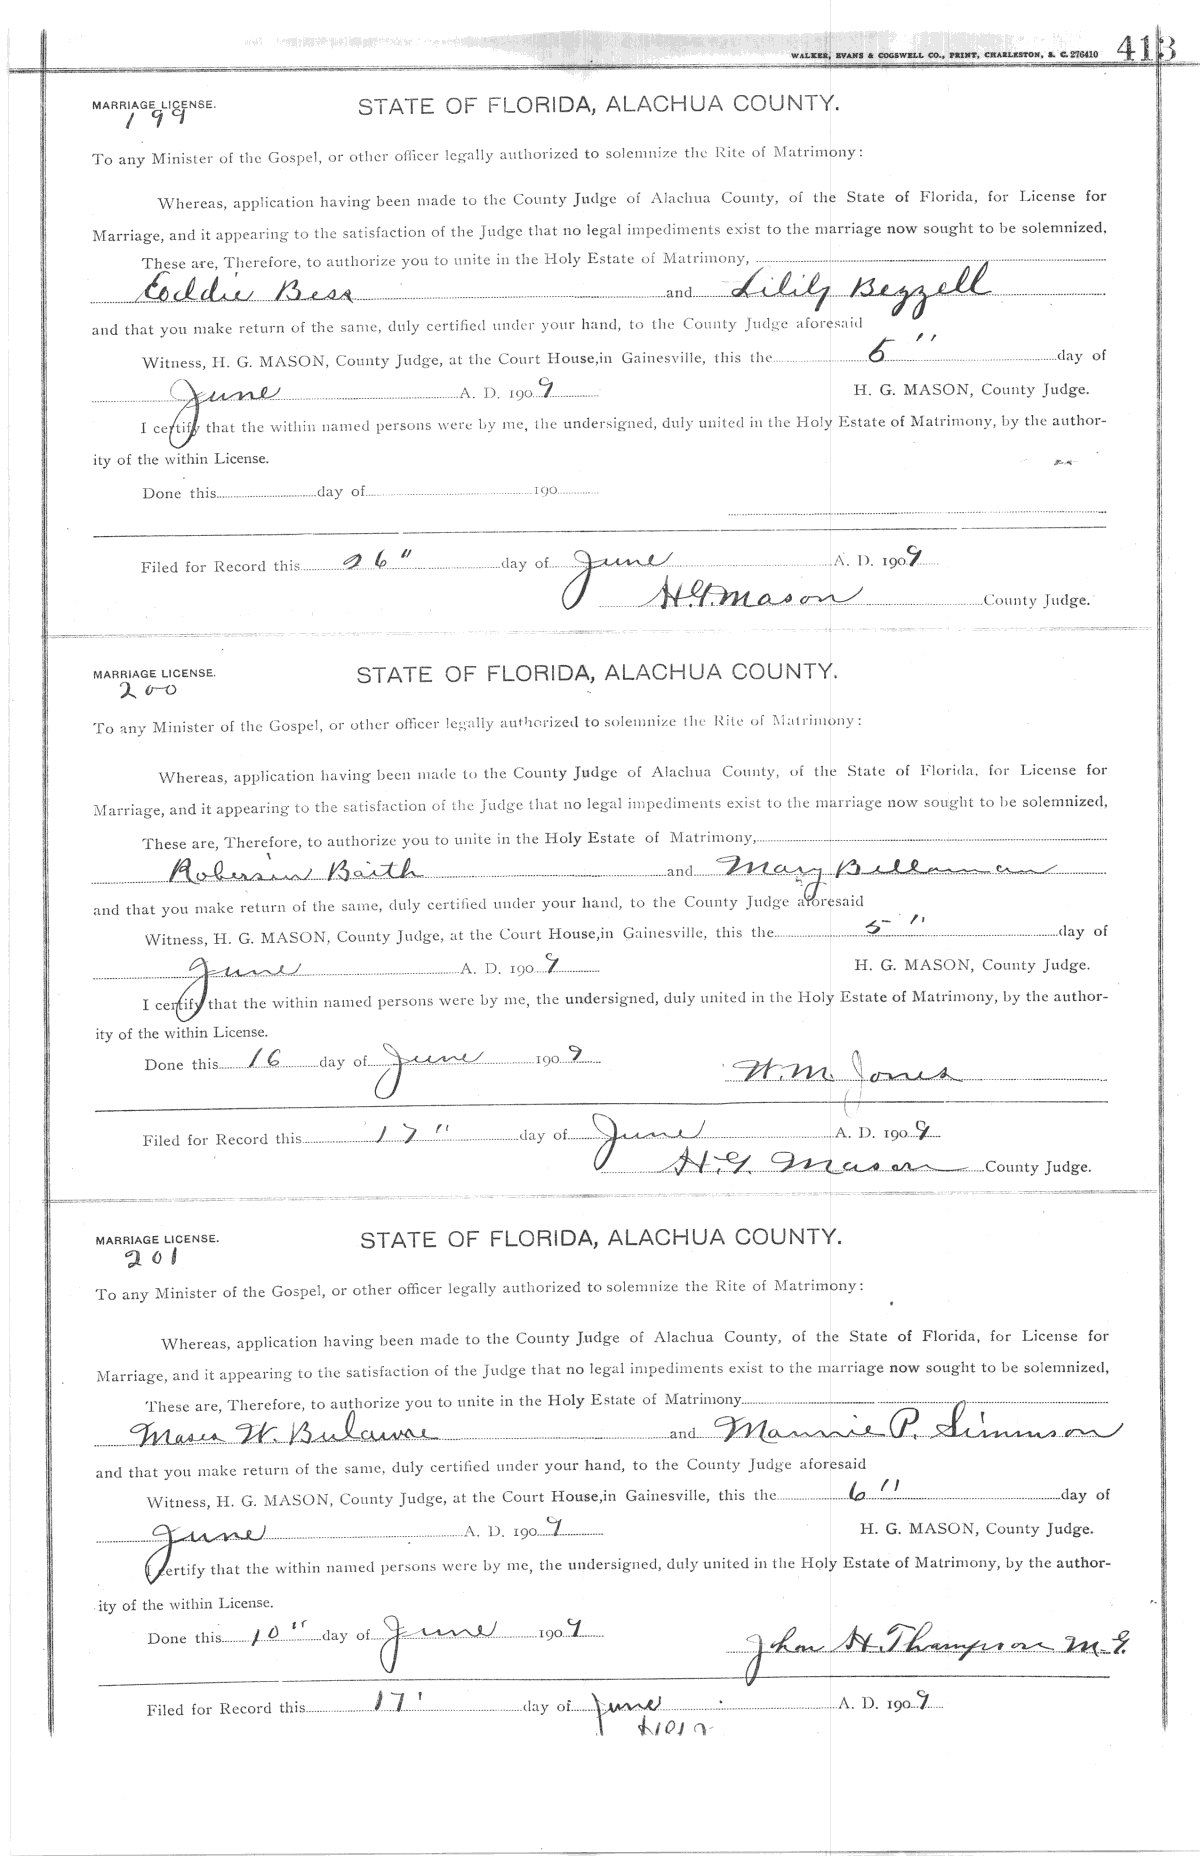 WALKER, EVANS & COGSWELL CO., PRINT, CHARLESTON, S. C. 276410 413
MARRIAGE LICENSE. STATE OF FLORIDA, ALACHUA COUNTY.
199
To any Minister of the Gospel, or other officer legally authorized to solemnize the Rite of Matrimony:
Whereas, application having been made to the County Judge of Alachua County, of the State of Florida, for License for
Marriage, and it appearing to the satisfaction of the Judge that no legal impediments exist to the marriage now sought to be solemnized,
These are, Therefore, to authorize you to unite in the Holy Estate of Matrimony,
Eoddie Bess and Lilily Bezzell
and that you make return of the same, duly certified under your hand, to the County Judge aforesaid
Witness, H. G. MASON, County Judge, at the Court House, in Gainesville, this the 5" day of
June A. D. 1909 H. G. MASON, County Judge.
I certify that the within named persons were by me, the undersigned, duly united in the Holy Estate of Matrimony, by the author-
ity of the within License.
Done this day of 190
Filed for Record this 26" day of June A. D. 1909
H. G. Mason County Judge.
MARRIAGE LICENSE. STATE OF FLORIDA, ALACHUA COUNTY.
200
To any Minister of the Gospel, or other officer legally authorized to solemnize the Rite of Matrimony:
Whereas, application having been made to the County Judge of Alachua County, of the State of Florida, for License for
Marriage, and it appearing to the satisfaction of the Judge that no legal impediments exist to the marriage now sought to be solemnized,
These are, Therefore, to authorize you to unite in the Holy Estate of Matrimony,
Baith and Mary Bellaman
and that you make return of the same, duly certified under your hand, to the County Judge aforesaid
Witness, H. G. MASON, County Judge, at the Court House, in Gainesville, this the 5" day of
June A. D. 1909 H. G. MASON, County Judge.
I certify that the within named persons were by me, the undersigned, duly united in the Holy Estate of Matrimony, by the author-
ity of the within License.
Done this 16 day of June 1909 W. M. Jones
Filed for Record this 17" day of June A. D. 1909
H. G. Mason County Judge.
MARRIAGE LICENSE. STATE OF FLORIDA, ALACHUA COUNTY.
201
To any Minister of the Gospel, or other officer legally authorized to solemnize the Rite of Matrimony:
Whereas, application having been made to the County Judge of Alachua County, of the State of Florida, for License for
Marriage, and it appearing to the satisfaction of the Judge that no legal impediments exist to the marriage now sought to be solemnized,
These are, Therefore, to authorize you to unite in the Holy Estate of Matrimony
Moses W. and Mannie P. Simmson
and that you make return of the same, duly certified under your hand, to the County Judge aforesaid
Witness, H. G. MASON, County Judge, at the Court House, in Gainesville, this the 6" day of
June A. D. 1909 H. G. MASON, County Judge.
I certify that the within named persons were by me, the undersigned, duly united in the Holy Estate of Matrimony, by the author-
ity of the within License.
Done this 10" day of June 1909 John H. Thompson M.G.
Filed for Record this 17' day of June A. D. 1909